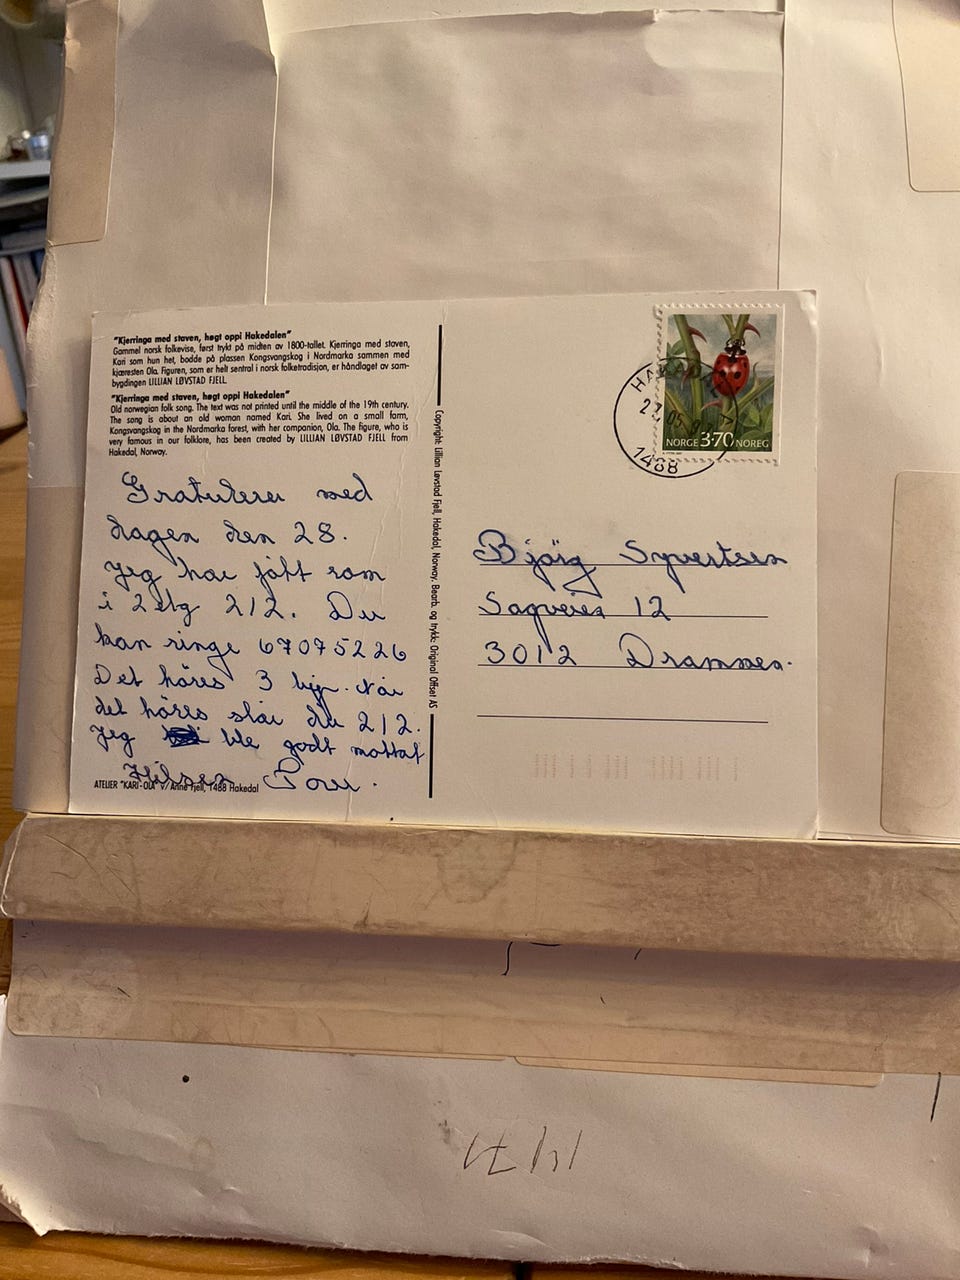 "Kjerringa med staven, høgt oppi Hakedalen"
Gammel norsk folkevise, først trykt på midten av 1800-tallet. Kjerringa med staven,
Kari som hun het, bodde på plassen Kongsvangskog i Nordmarka sammen med
kjæresten Ola. Figuren, som er helt sentral i norsk folketradisjon, er håndlaget av sam-
bygdingen LILLIAN LØVSTAD FJELL.
"Kjerringa med staven, høgt oppi Hakedalen"
Old norwegian folk song. The text was not printed until the middle of the 19th century.
The song is about an old woman named Kari. She lived on a small farm,
Kongsvangskog in the Nordmarka forest, with her companion, Ola. The figure, who is
very famous in our folklore, has been created by LILLIAN LØVSTAD FJELL from
Hakedal, Norway.
Gratulerer med
dagen den 28.
Jeg har fått rom
i 2 etg 212. Du
kan ringe 67075226
Det høres 3 bip. Når
det høres slår du 212.
Jeg ble godt mottat
Hilsen
ATELIER "KARI-OLA" v/Anne Fjell, 1488 Hakedal
Copyright: Lillian Løvstad Fjell, Hakedal, Norway. Bearb. og trykk: Original Offset AS
NORGE 3·70 NOREG
1488
Bjørg Syvertsen
Sagveien 12
3012 Drammen.